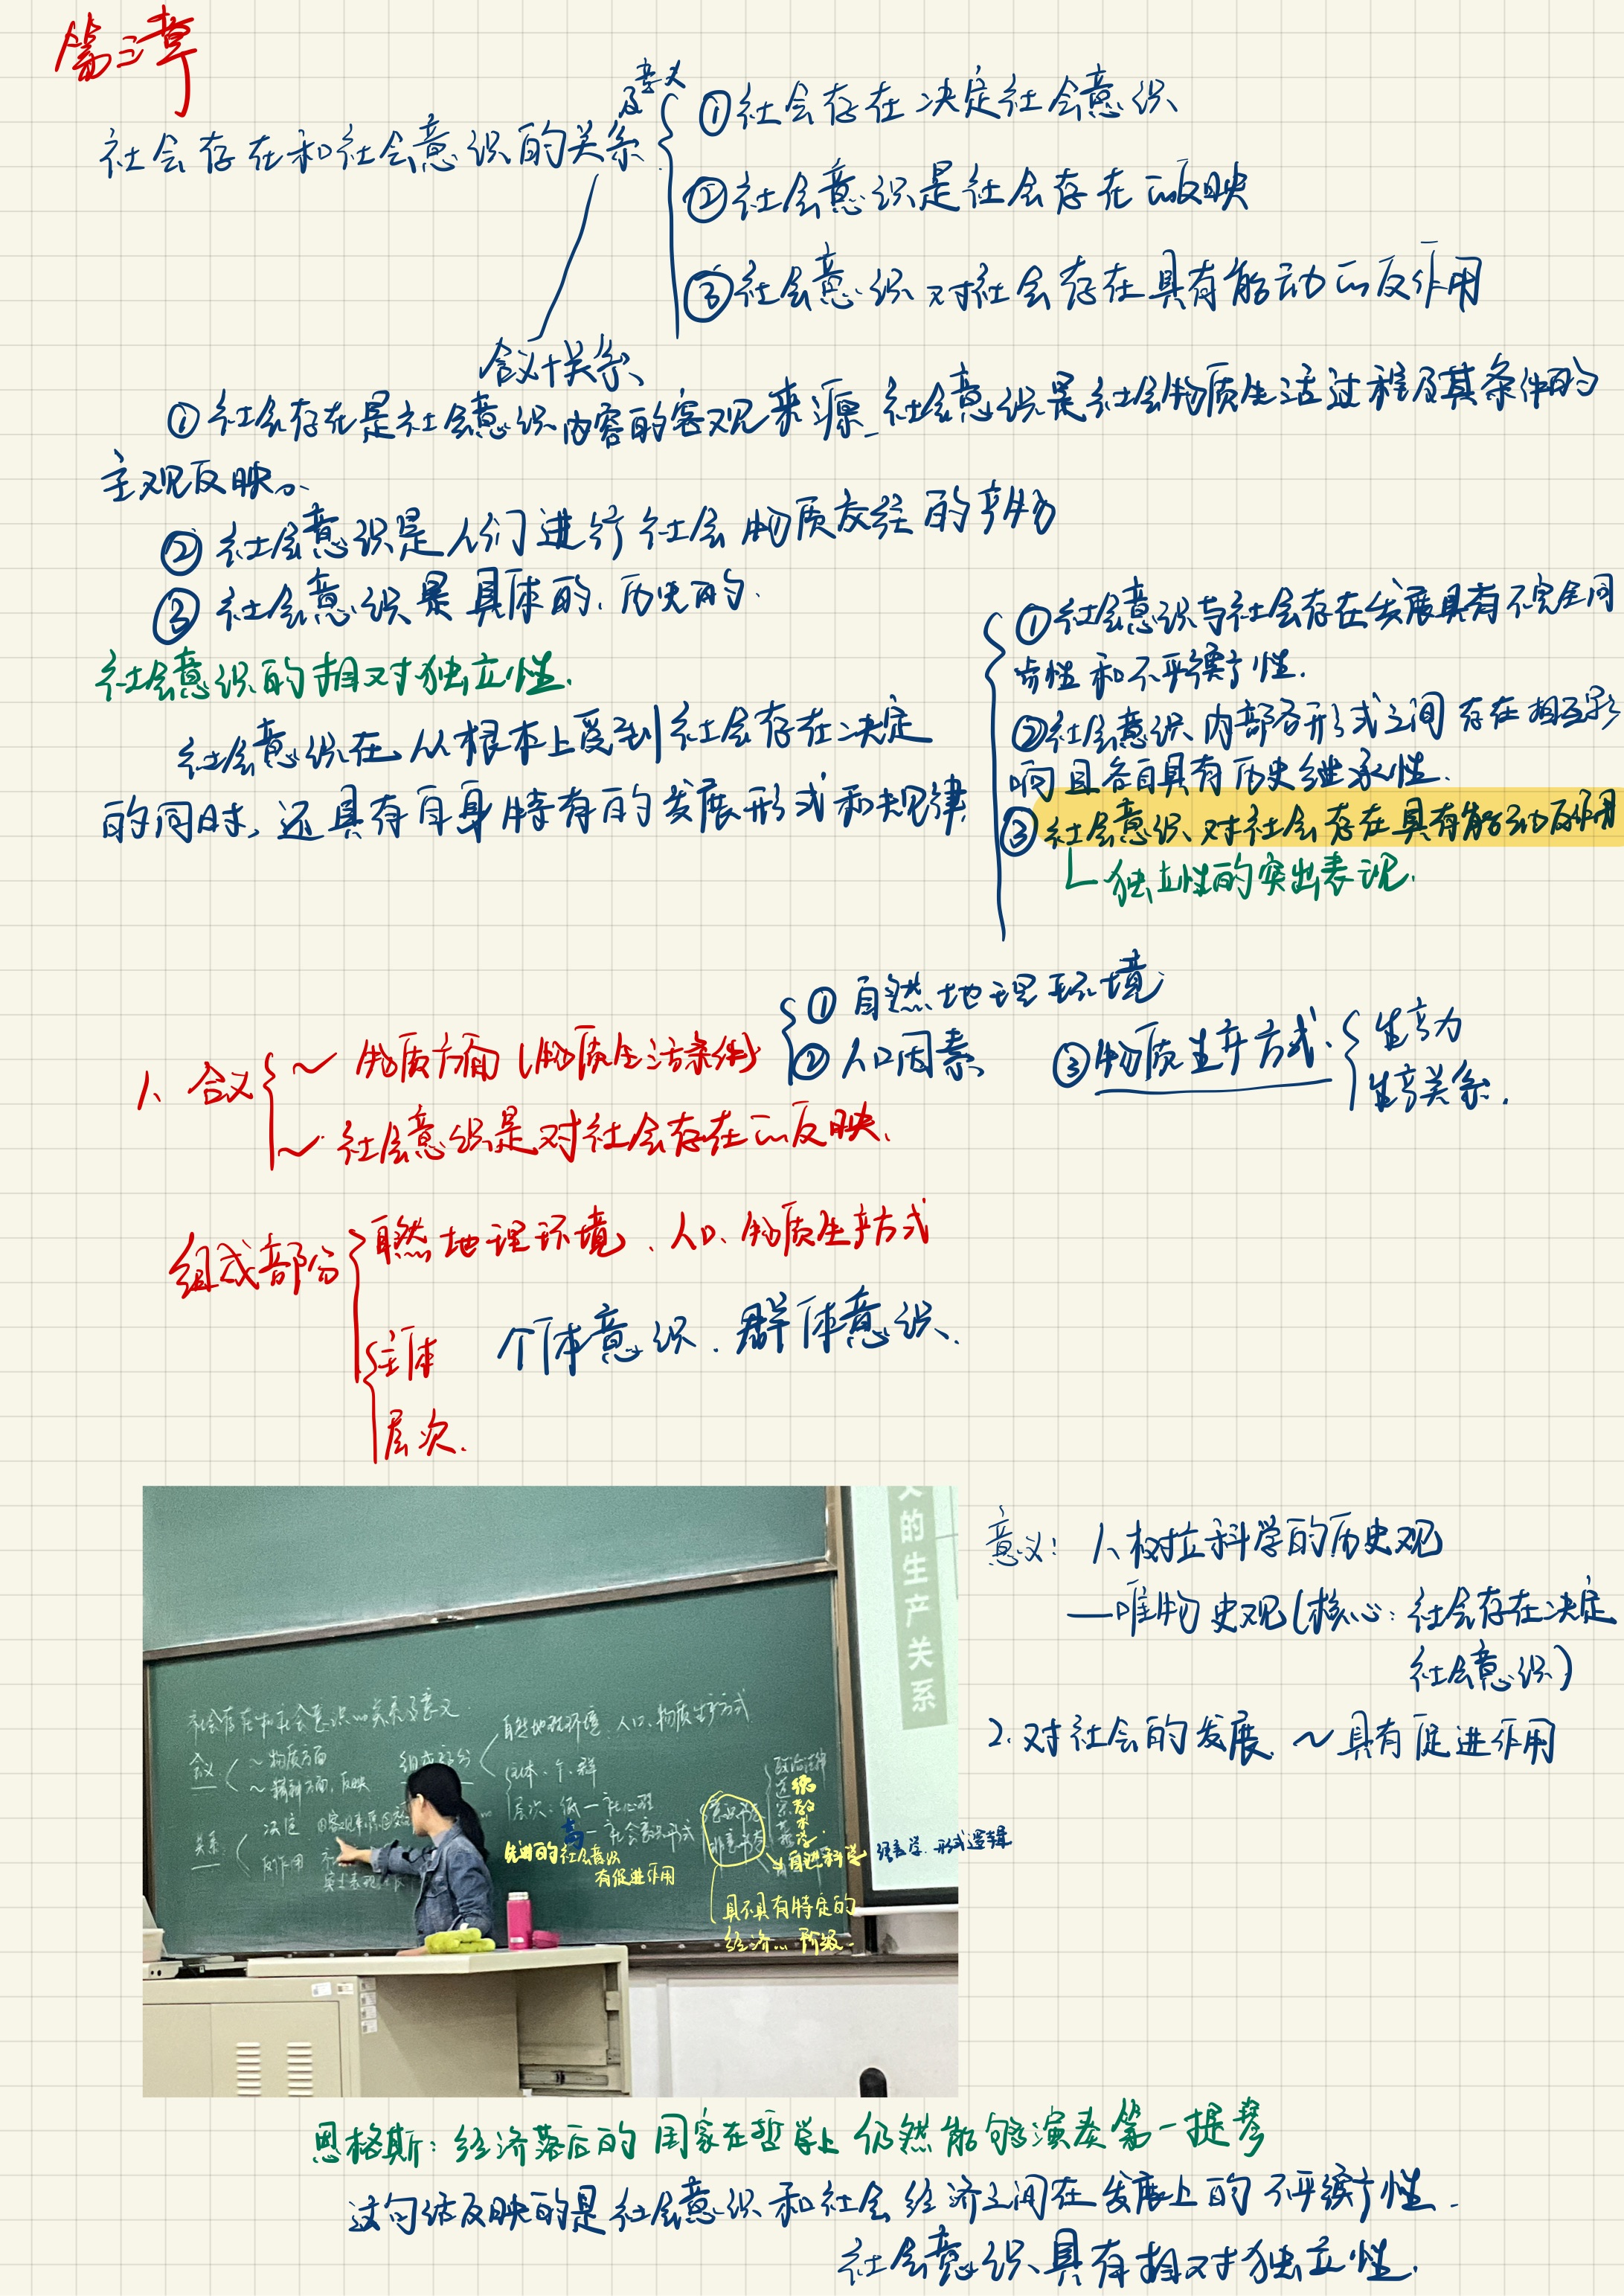 第三章
社会存在和社会意识的关系及意义
①社会存在决定社会意识
②社会意识是社会存在的反映
③社会意识对社会存在具有能动的反作用
含义+关系、
①社会存在是社会意识内容的客观来源_社会意识是社会物质生活过程及其条件的
主观反映。
②社会意识是人们进行社会物质交往的产物
③社会意识是具体的、历史的.
社会意识的相对独立性.
社会意识在从根本上受到社会存在决定
的同时、还具有自身特有的发展形式和规律.
①社会意识与社会存在发展具有不完全同
步性和不平衡性.
②社会意识内部各形式之间存在相互影
响且各自具有历史继承性.
③社会意识对社会存在具有能动反作用
独立性的突出表现.
1、含义
～物质方面(物质生活条件)
①自然地理环境
②人口因素
③物质生产方式.
生产力
生产关系.
～社会意识是对社会存在的反映、
组成部分
自然地理环境、人口、物质生产方式
主体 个体意识.群体意识、
层次.
的生产关系
社会存在和社会意识的关系及意义
含义 ～物质方面
～精神方面,反映
组成部分
自然地理环境、人口、物质生产方式
主体、个、群
层次:低—社心理
高—社会意识形式
关系: 决定
反作用
先进的社会意识
有促进作用
政治法律
自然科学 语言学.形式逻辑
具不具有特定的
经济...阶级.
意义: 1、树立科学的历史观
—唯物史观(核心:社会存在决定
社会意识)
2.对社会的发展.～具有促进作用
恩格斯:经济落后的国家在哲学上仍然能够演奏第一提琴
这句话反映的是社会意识和社会经济之间在发展上的不平衡性.
社会意识具有相对独立性.